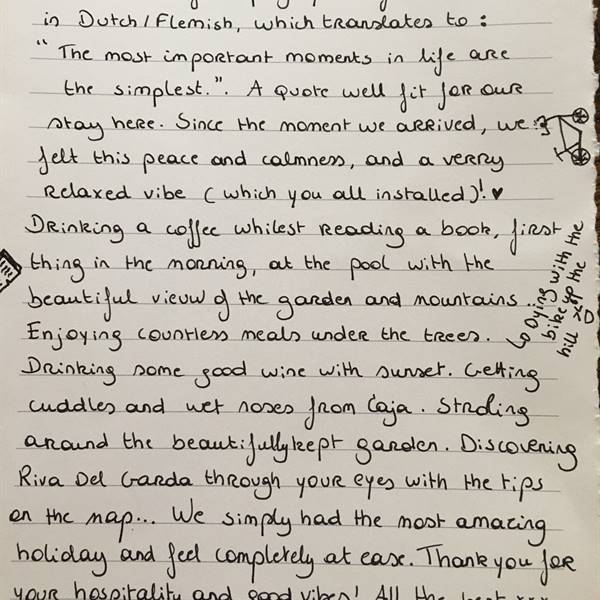 in Dutch/Flemish, which translates to :
" The most important moments in life are
the simplest.". A Quote well fit for our
stay here. Since the moment we arrived, we
felt this peace and calmness, and a verry
relaxed vibe ( which you all installed )! ♥
Drinking a coffee whilest reading a book, first
thing in the morning, at the pool with the
beautiful vieuw of the garden and mountains ...
Enjoying countless meals under the trees.
Drinking some good wine with sunset. Getting
cuddles and wet noses from Caja. Stroling
around the beautifully kept garden. Discovering
Riva Del Garda through your eyes with the tips
on the map... We simply had the most amazing
holiday and feel completely at ease. Thank you for
your hospitality and good vibes! All the best xxx
Dying with the
bike up the
hill xD